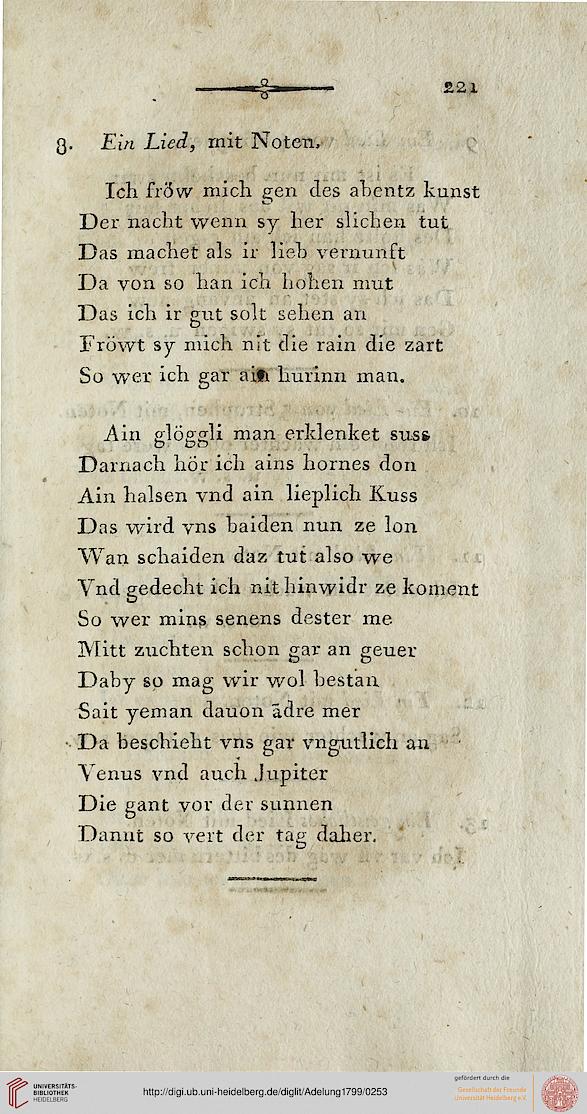 221
8. Ein Lied, mit Noten.
Ich fröw mich gen des abentz kunst
Der nacht wenn sy her slichen tut
Das machet als ir lieb vernunft
Da von so han ich hohen mut
Das ich ir gut solt sehen an
Fröwt sy mich nit die rain die zart
So wer ich gar ain hurinn man.
Ain glöggli man erklenket suss
Darnach hör ich ains hornes don
Ain halsen vnd ain lieplich Kuss
Das wird vns baiden nun ze lon
Wan schaiden daz tut also we
Vnd gedecht ich nit hinwidr ze koment
So wer mins senens dester me
Mitt zuchten schon gar an geuer
Daby so mag wir wol bestan
Sait yeman dauon ādre mer
Da beschieht vns gar vngutlich an
Venus vnd auch Jupiter
Die gant vor der sunnen
Dannt so vert der tag daher.
UNIVERSITÄTS-
BIBLIOTHEK
HEIDELBERG
http://digi.ub.uni-heidelberg.de/diglit/Adelung1799/0253
gefördert durch die
Gesellschaft der Freunde
Universität Heidelberg e.V.